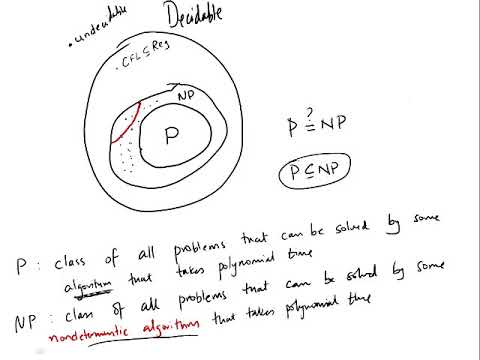 undecidable
Decidable
CFL ⊆ Reg
NP
P
P ≟ NP
P ⊆ NP
P : class of all problems that can be solved by some
algorithm that takes polynomial time
NP : class of all problems that can be solved by some
nondeterministic algorithm that takes polynomial time